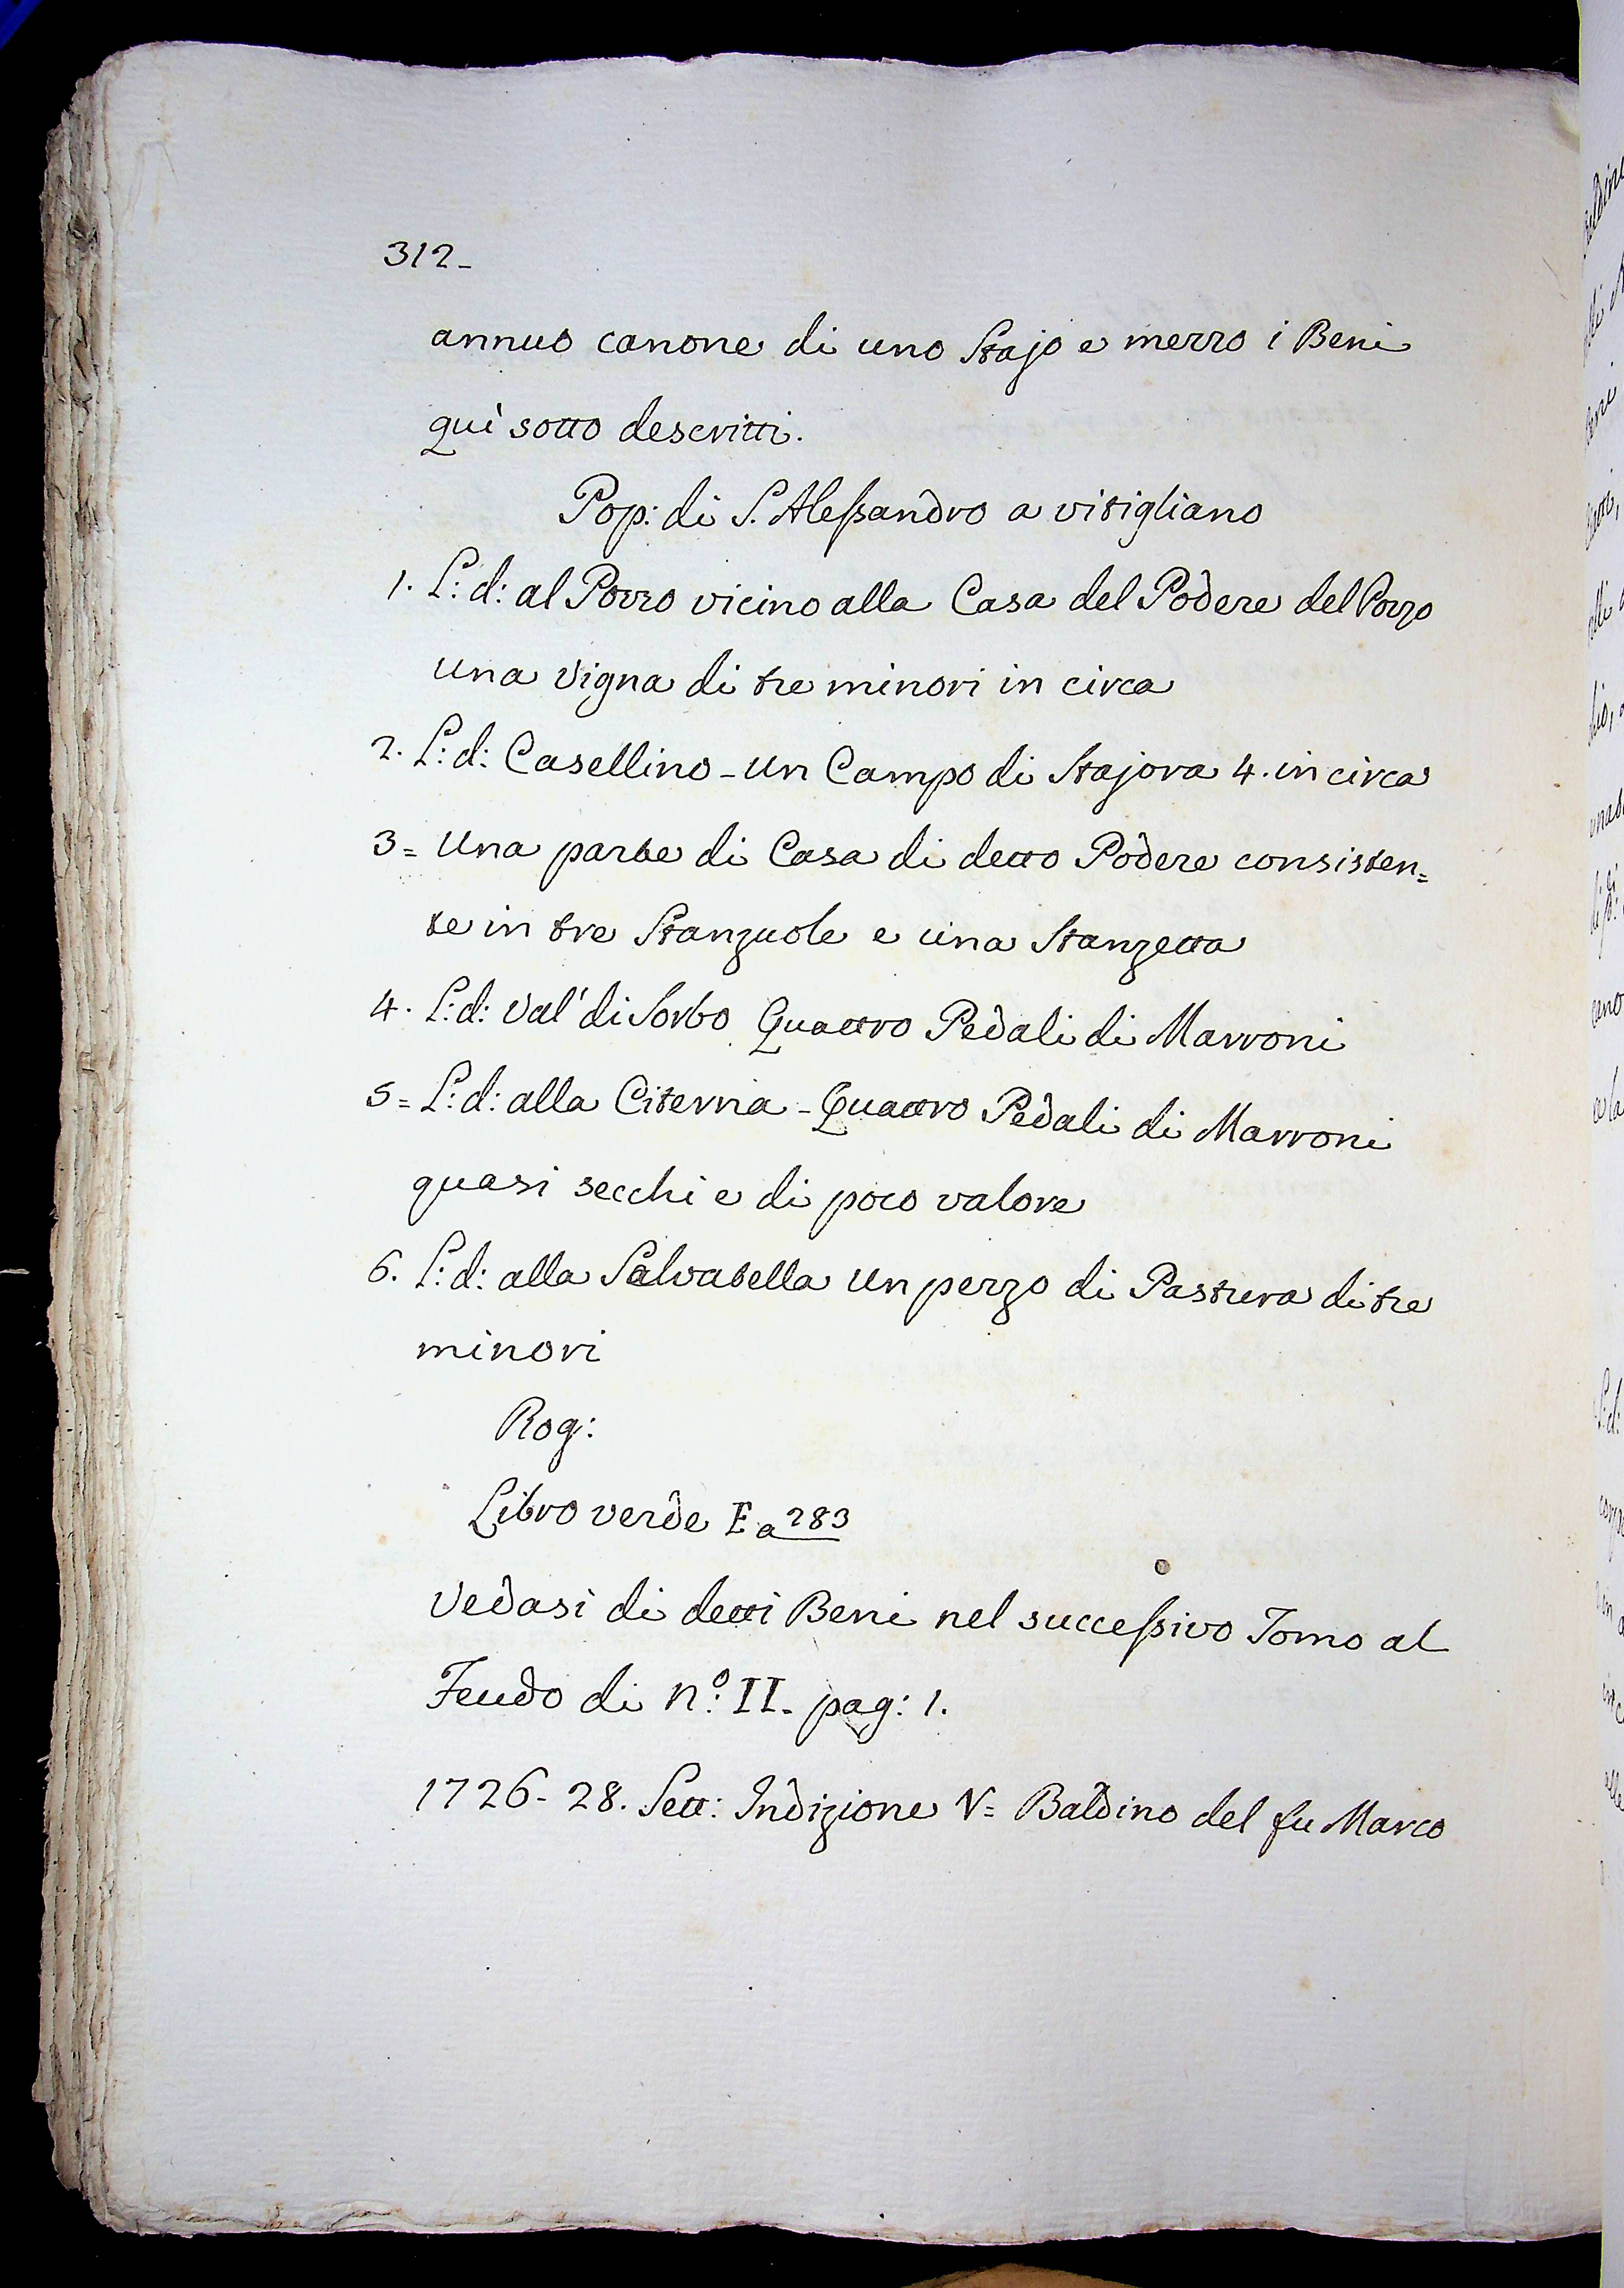 312-
annuo canone di uno Stajo e mezzo i Beni
quì sotto descritti.
Pop: di S. Alessandro a vitigliano
1. L: d: al Pozzo vicino alla Casa del Podere del Pozzo
una Vigna di tre minori in circa
2. L: d: Casellino - un Campo di Stajora 4. in circa
3= Una parte di Casa di detto Podere consisten=
te in tre Stanzuole e una Stanzetta
4. L: d: Val' di Sorbo Quattro Pedali di Marroni
5= L: d: alla Citerna - Quattro Pedali di Marroni
quasi secchi e di poco valore
6. L: d: alla Salvatella un pezzo di Pastura di tre
minori
Rog:
Libro verde E a 283
Vedasi di detti Beni nel successivo Tomo al
Feudo di n.º II. pag: 1.
1726- 28. Sett: Indizione V= Baldino del fu Marco